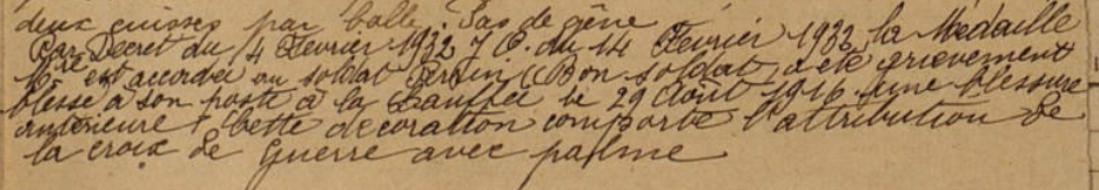 deux cuisses par balle. Pas de gêne
Par Decret du 4 Fevrier 1932 J O. du 14 Fevrier 1932 la Medaille
Mre est accordée au soldat Perrin "Bon soldat, a été grievement
blessé à son poste à la Lauffée le 29 Août 1916. Une blessure
antérieure. Cette décoration comporte l'attribution de
la croix de Guerre avec palme